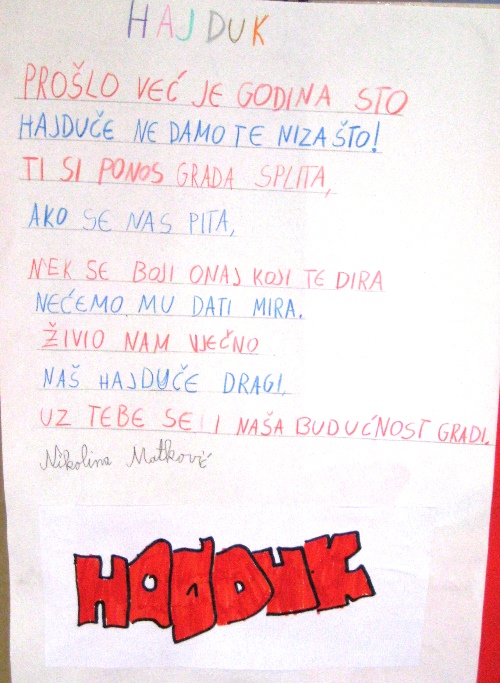 HAJDUK
PROŠLO VEĆ JE GODINA STO
HAJDUČE NE DAMO TE NIZAŠTO!
TI SI PONOS GRADA SPLITA,
AKO SE NAS PITA,
NEK SE BOJI ONAJ KOJI TE DIRA
NEĆEMO MU DATI MIRA.
ŽIVIO NAM VJEČNO
NAŠ HAJDUČE DRAGI,
UZ TEBE SE I NAŠA BUDUĆNOST GRADI.
Nikolina Matković
HAJDUK